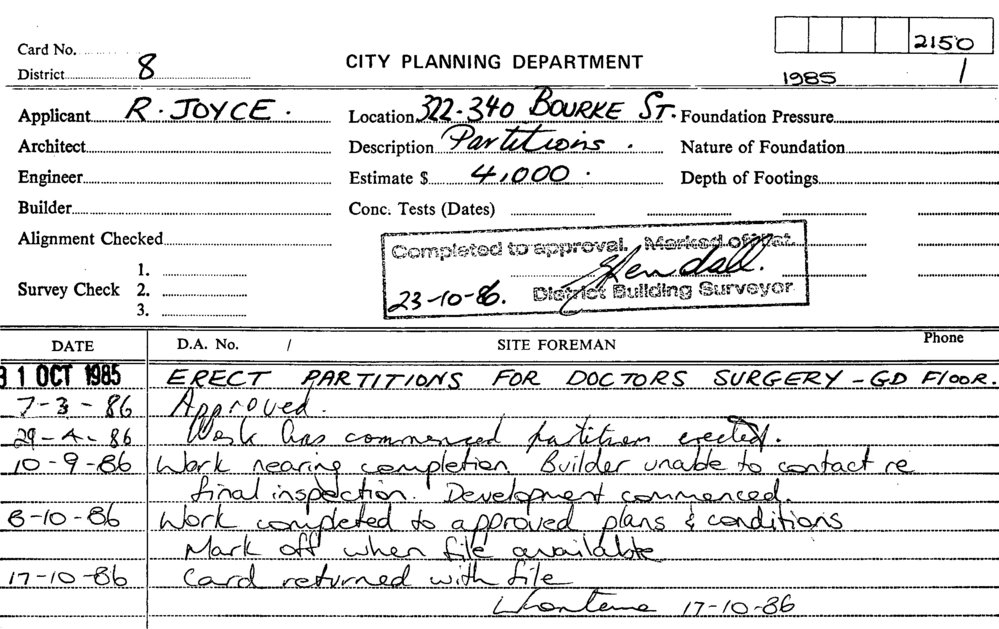 2150
Card No.
District 8
CITY PLANNING DEPARTMENT
1985 1
Applicant R. JOYCE. Location 322-340 BOURKE ST. Foundation Pressure
Architect Description Partitions. Nature of Foundation
Engineer Estimate $ 4,000. Depth of Footings
Builder Conc. Tests (Dates)
Alignment Checked
Completed to approval. Marked off Plat.
Survey Check 1.
2.
3.
23-10-86. District Building Surveyor
DATE D.A. No. / SITE FOREMAN Phone
31 OCT 1985 ERECT PARTITIONS FOR DOCTORS SURGERY - GD FLOOR.
7-3-86 Approved.
29-4-86 Work has commenced partition erected.
10-9-86 Work nearing completion. Builder unable to contact re
final inspection. Development commenced.
8-10-86 Work completed to approved plans & conditions
Mark off when file available
17-10-86 Card returned with file
17-10-86